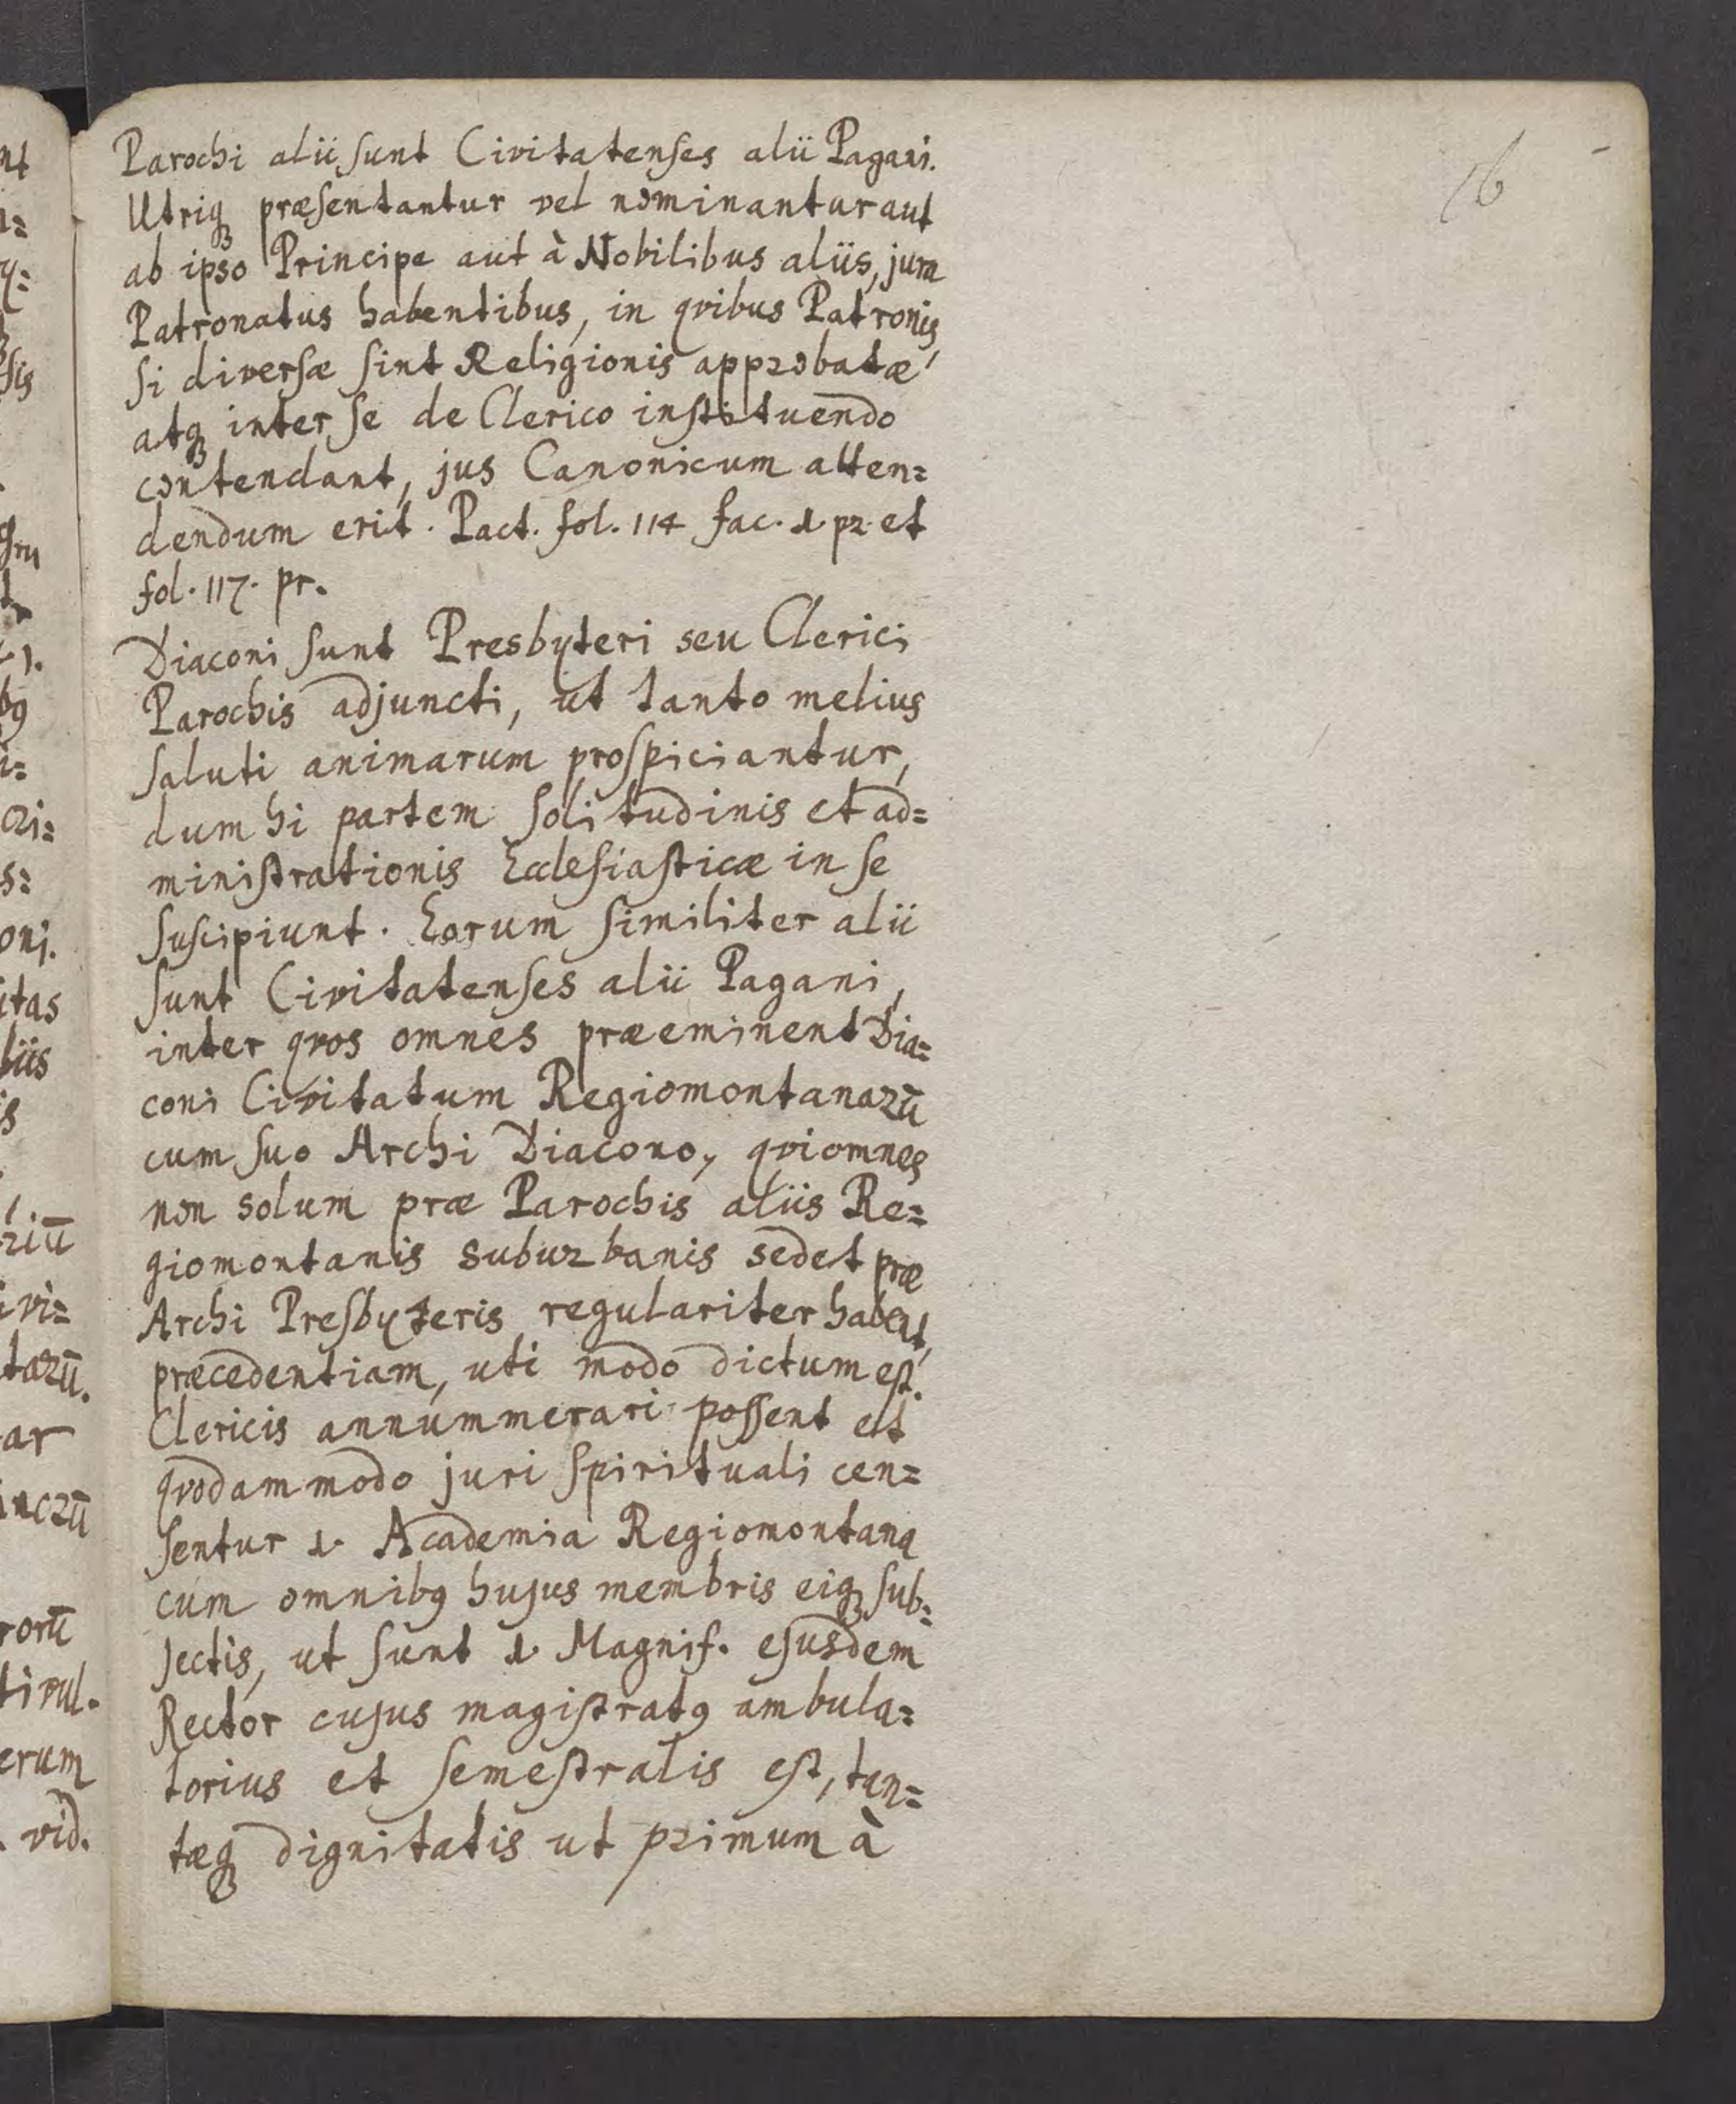 16
Parochi alii sunt Civitatenses alii Pagani.
Utriq; præsentantur vel nominantur aut
ab ipso Principe aut à Nobilibus aliis, jura
Patronatus habentibus, in qvibus Patronis,
si diversæ sint Religionis approbatæ
atq; inter se de Clerico instituendo
contendant, jus Canonicum atten=
dendum erit. Pact. fol. 114 fac. 1. pr et
fol. 117. pr.
Diaconi sunt Presbyteri seu Clerici
Parochis adjuncti, ut tanto melius
saluti animarum prospiciantur,
dum hi partem solitudinis et ad=
ministrationis Ecclesiasticæ in se
suscipiunt. Eorum similiter alii
sunt Civitatenses alii Pagani,
inter qvos omnes præeminent Dia=
coni Civitatum Regiomontanarū
cum suo Archi Diacono, qvi omnes
non solum præ Parochis aliis Re=
giomontanis suburbanis sed et præ
Archi Presbyteris regulariter habent
præcedentiam, uti modo dictum est.
Clericis annummerari possent et
qvodammodo juri spirituali cen=
sentur 1. Academia Regiomontana
cum omnibq hujus membris eiq; sub=
jectis, ut sunt 1. Magnif. ejusdem
Rector cujus magistratq ambula=
torius et semestralis est, tan=
tæq; dignitatis ut primum à